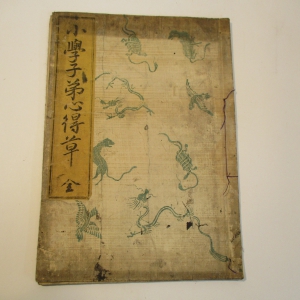 小學子弟心得草 全